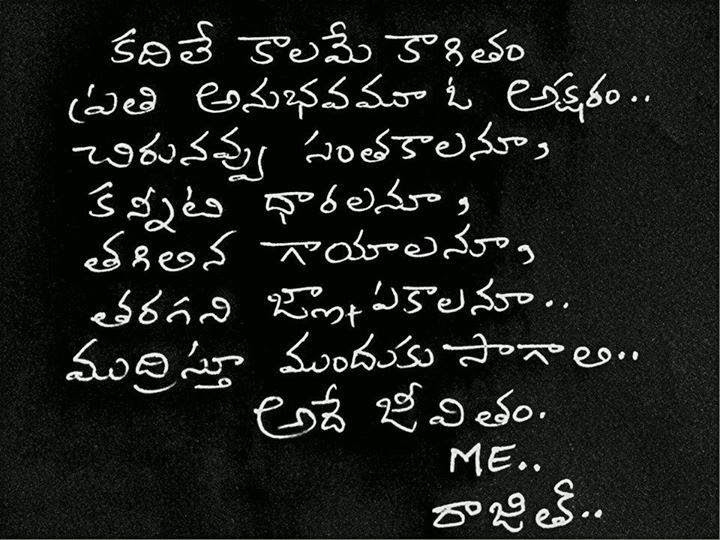 కదిలే కాలమే కాగితం
ప్రతి అనుభవమూ ఓ అక్షరం..
చిరునవ్వు సంతకాలనూ,
కన్నీటి ధారలనూ,
తగిలిన గాయాలనూ,
తరగని జ్ఞాపకాలనూ..
ముద్రిస్తూ ముందుకు సాగాలి..
అదే జీవితం.
ME..
రాజిత్..